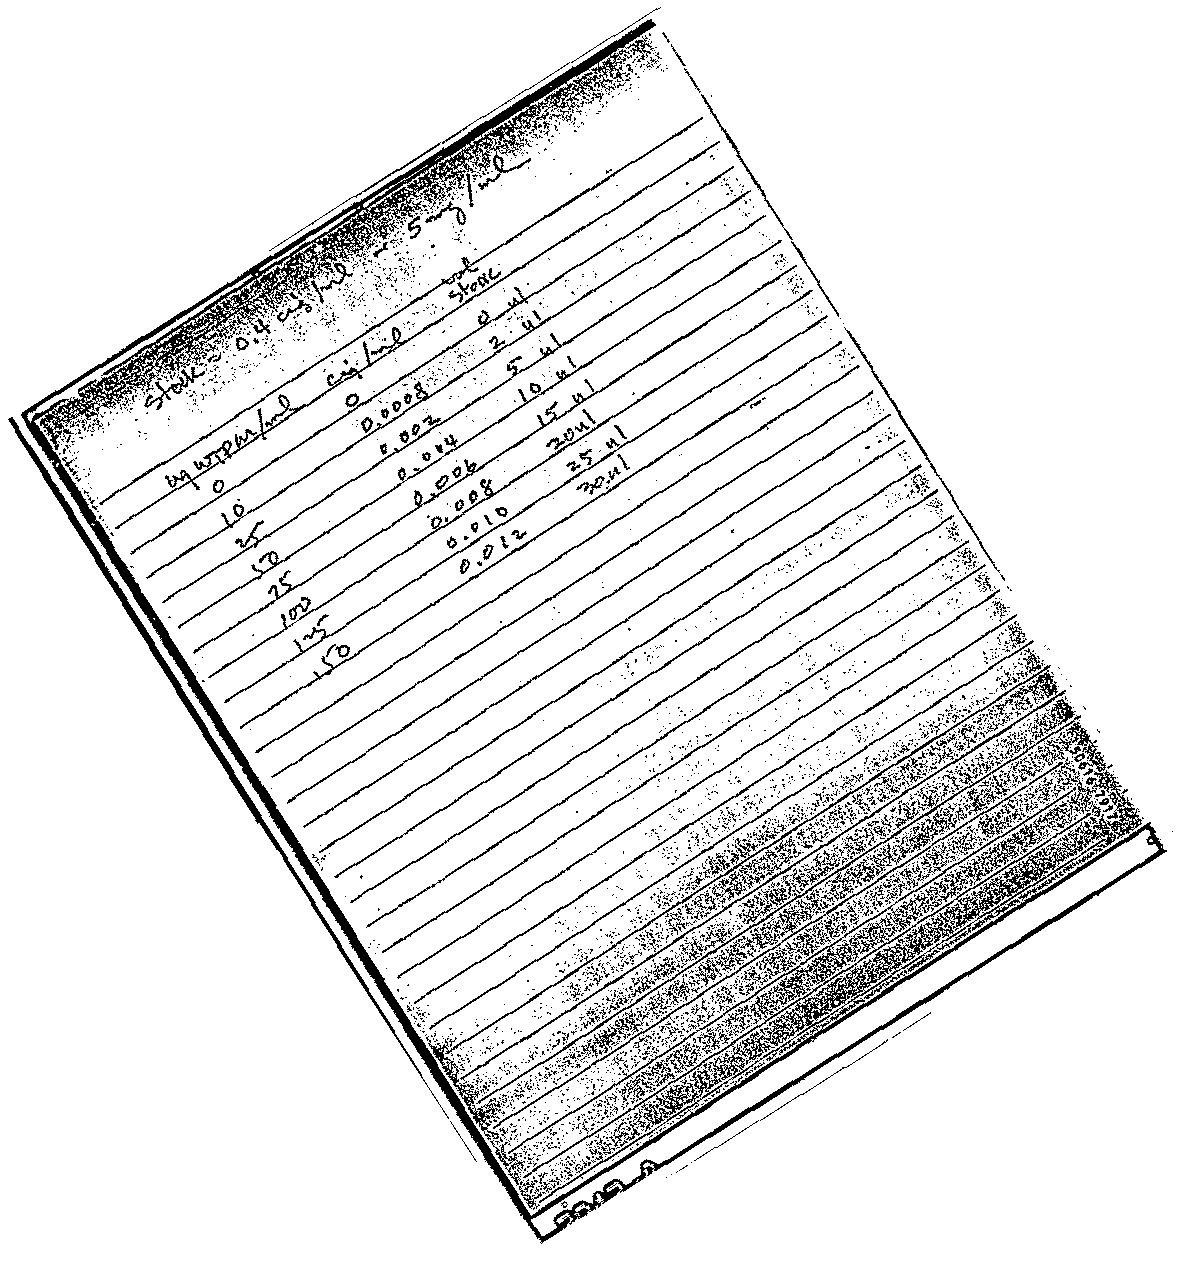 Stock ~ 0.4 cig/ml ~ 5 mg/ml
ug WTPM/ml cig/ml vol stock
0 0 0 ul
10 0.0008 2 ul
25 0.002 5 ul
50 0.004 10 ul
75 0.006 15 ul
100 0.008 20 ul
125 0.010 25 ul
150 0.012 30 ul
50616 7977